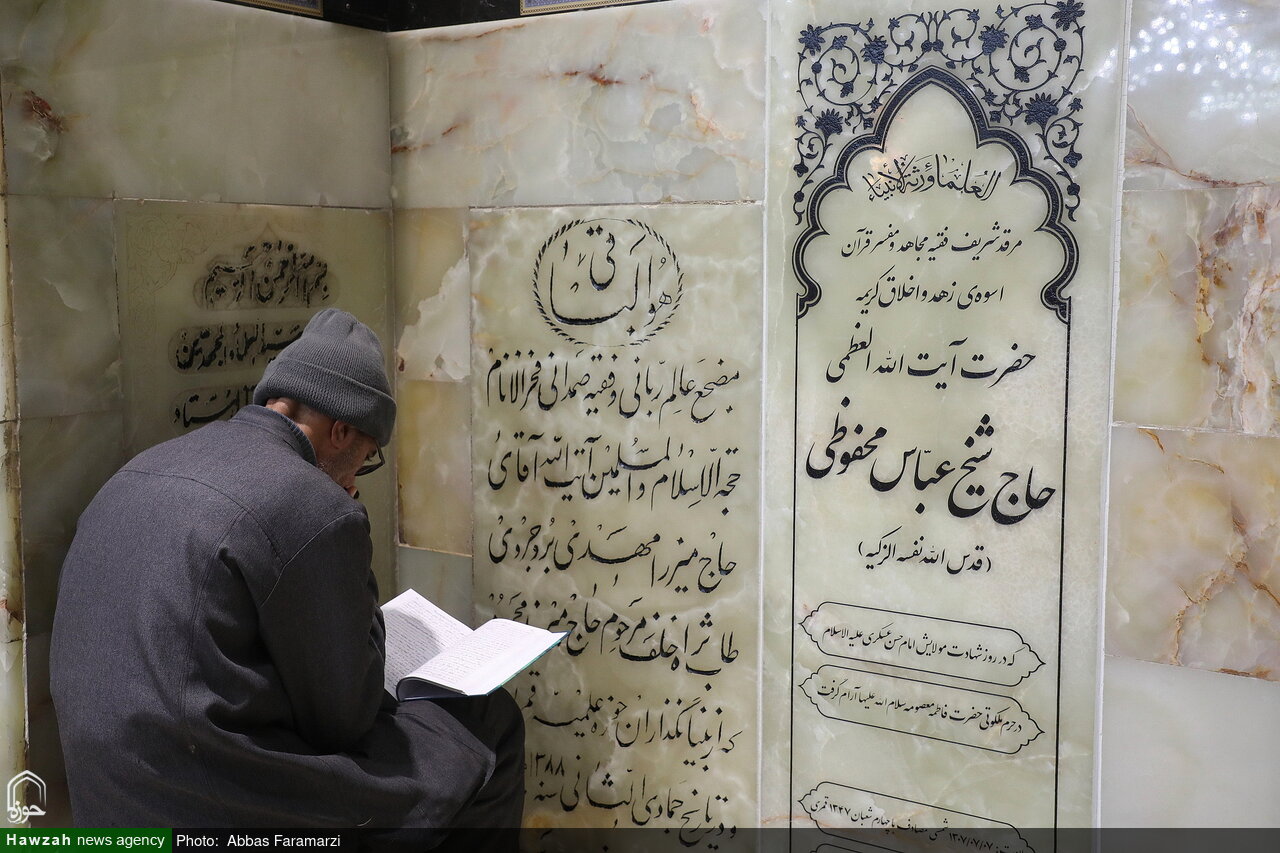 العلماء ورثة الأنبیاء
مرقد شریف فقیه مجاهد و مفسر قرآن
اسوه‌ی زهد و اخلاق کریمه
حضرت آیت الله العظمی
حاج شیخ عباس محفوظی
(قدس الله نفسه الزکیه)
که در روز شهادت مولایش امام حسن عسکری علیه الاسلام
در حرم ملکوتی حضرت فاطمه معصومه سلام الله علیها آرام گرفت
۱۳۰۷/۰۷/۰۷ شمسی مصادف با چهارم شعبان ۱۳۴۷ قمری
هو الباقی
مضجع عالم ربانی و فقیه صمدانی فخر الانام
حجة الاسلام والمسلمین آیت الله آقای
حاج میرزا مهدی بروجردی
طاب ثراه خلف مرحوم حاج میرزا
که از بنیانگذاران حوزه علمیه
و در تاریخ جمادی الثانی سنه ۱۳۸۸
بسم الله الرحمن الرحیم
العلماء و المجتهدین
الاستاد
حوزه
Hawzah news agency
Photo: Abbas Faramarzi